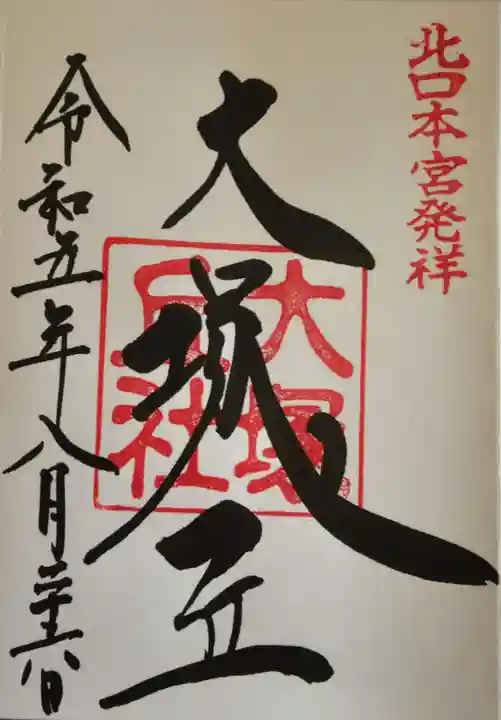 北口本宮発祥
大塚丘
大塚
丘社
令和五年八月二十六日